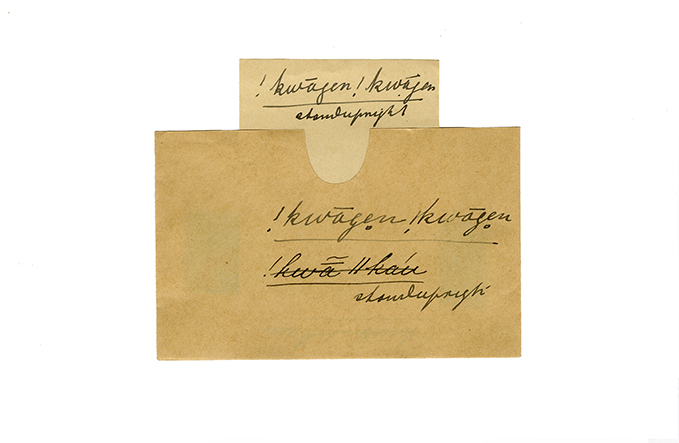 !kwāgen!kwāgen
stand upright
!kwāgen!kwāgen
!kwā̃ ǁkáu
stand upright